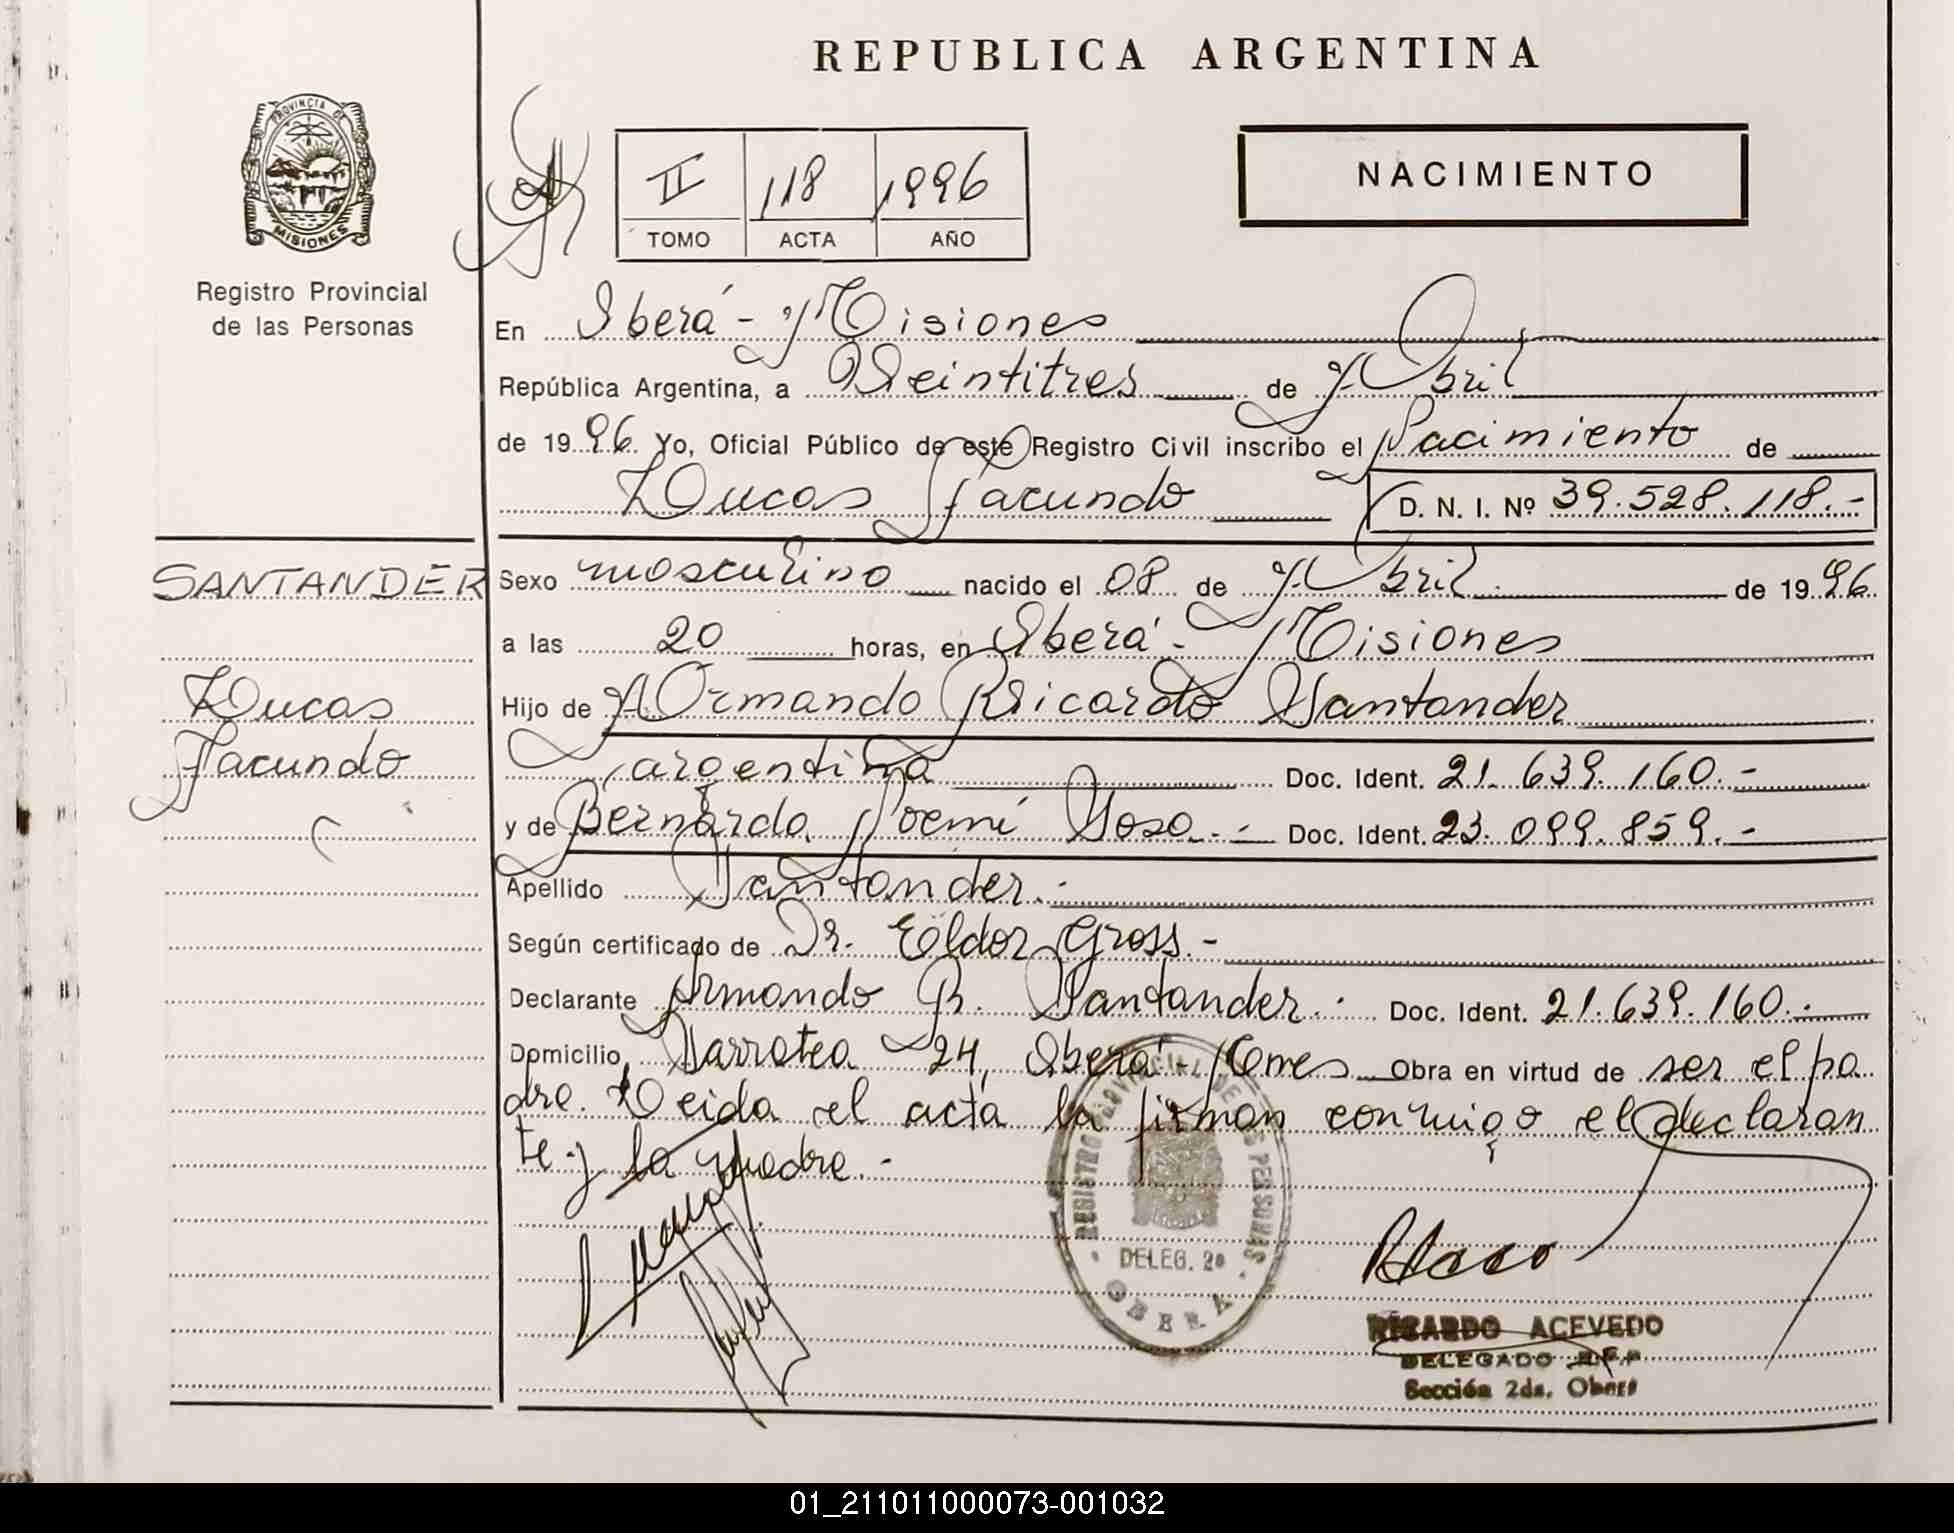 REPUBLICA ARGENTINA
PROVINCIA DE
MISIONES
Registro Provincial
de las Personas
II 118 1996
TOMO ACTA AÑO
NACIMIENTO
En Oberá - Misiones
República Argentina, a Veintitres de Abril
de 1996 Yo, Oficial Público de este Registro Civil inscribo el Nacimiento de
Lucas Facundo D. N. I. Nº 39.528.118.-
SANTANDER
Lucas
Facundo
Sexo masculino nacido el 08 de Abril de 1996
a las 20 horas, en Oberá - Misiones
Hijo de Armando Ricardo Santander
argentina Doc. Ident. 21.639.160.-
y de Bernarda Noemí Sosa.- Doc. Ident. 23.099.859.-
Apellido Santander.-
Según certificado de Dr. Eldor Gross.-
Declarante Armando R. Santander. Doc. Ident. 21.639.160.-
Domicilio 24, Oberá - Mnes Obra en virtud de ser el pa
dre. Leida el acta la firman conmigo el declaran
te y la madre.-
REGISTRO PROVINCIAL DE LAS PERSONAS
DELEG. 2a
OBERA
RICARDO ACEVEDO
DELEGADO R.P.P.
Sección 2da. Oberá
01_211011000073-001032